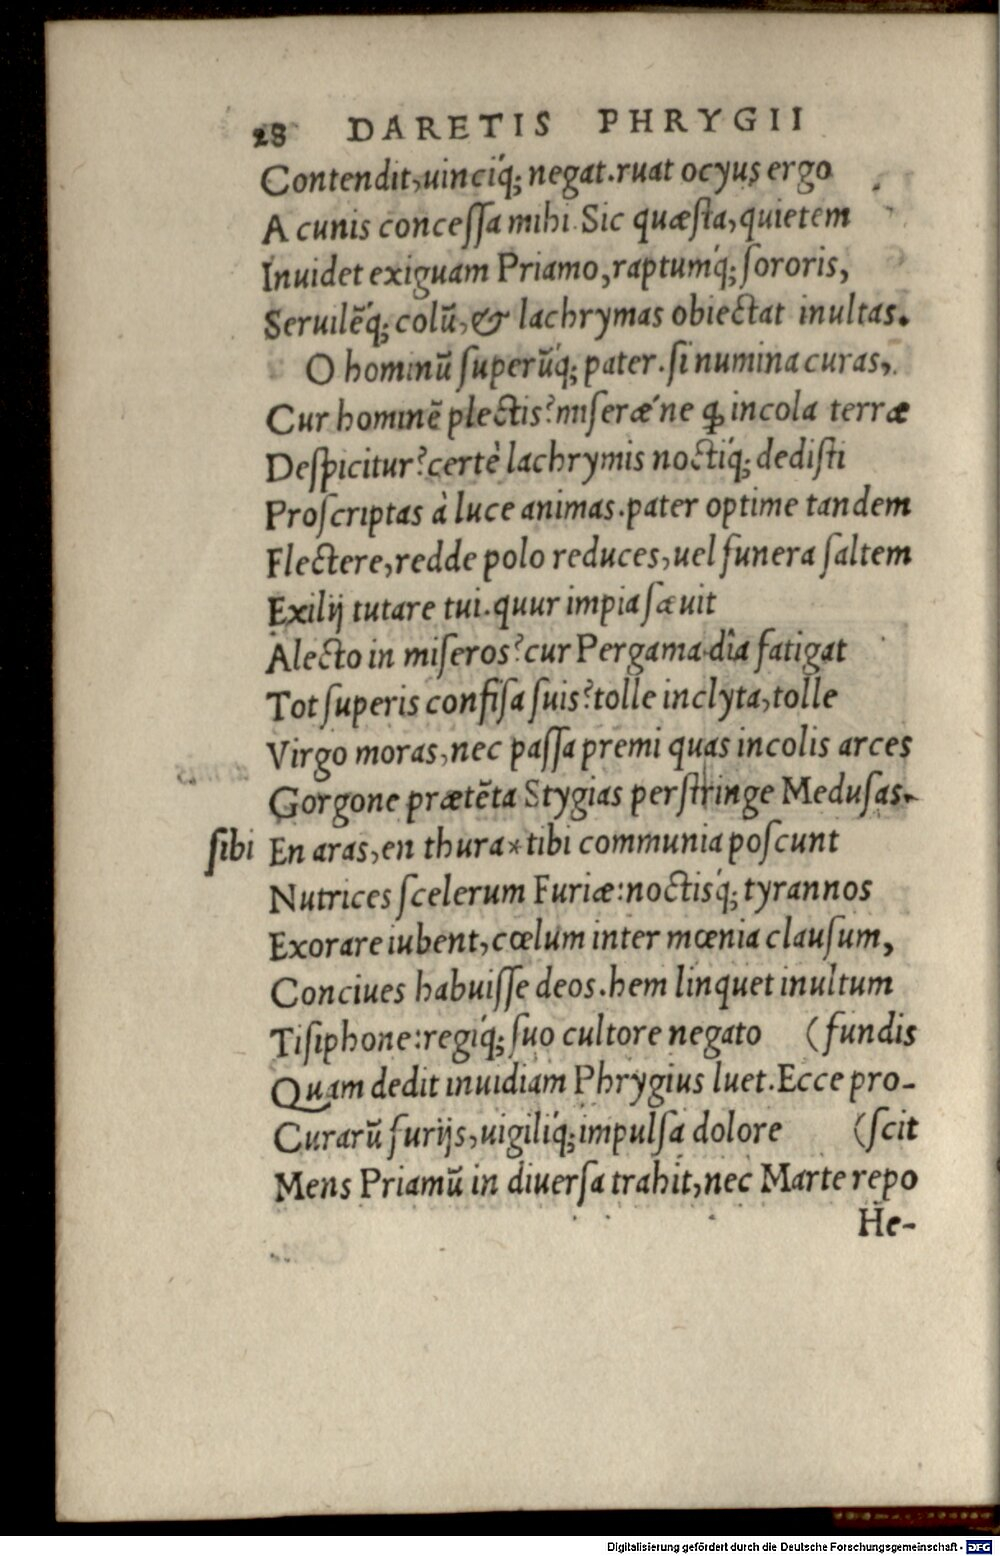 28 DARETIS PHRYGII
Contendit,uinciq́; negat.ruat ocyus ergo
A cunis conceſſa mihi. Sic quæſta,quietem
Inuidet exiguam Priamo,raptumq́; ſororis,
Seruilẽq́; colũ,& lachrymas obiectat inultas.
O hominũ ſuperũq́; pater.ſi numina curas,
Cur hominẽ plectis?miſeræ´ne ꝗ incola terræ
Deſpicitur?certè lachrymis noctiq́; dediſti
Proſcriptas à luce animas.pater optime tandem
Flectere,redde polo reduces,uel funera ſaltem
Exilij tutare tui.quur impia ſæuit
Alecto in miſeros?cur Pergama dîa fatigat
Tot ſuperis confiſa ſuis?tolle inclyta,tolle
Virgo moras,nec paſſa premi quas incolis arces
Gorgone prætẽta Stygias perſtringe Meduſas.
ſibi En aras,en thura*tibi communia poſcunt
Nutrices ſcelerum Furiæ:noctisq́; tyrannos
Exorare iubent,cœlum inter mœnia clauſum,
Conciues habuiſſe deos.hem linquet inultum
Tiſiphone:regiq́; ſuo cultore negato (fundis
Quam dedit inuidiam Phrygius luet.Ecce pro-
Curarũ furijs,uigiliq́;impulſa dolore (ſcit
Mens Priamũ in diuerſa trahit,nec Marte repo
He-
Digitalisierung gefördert durch die Deutsche Forschungsgemeinschaft - DFG